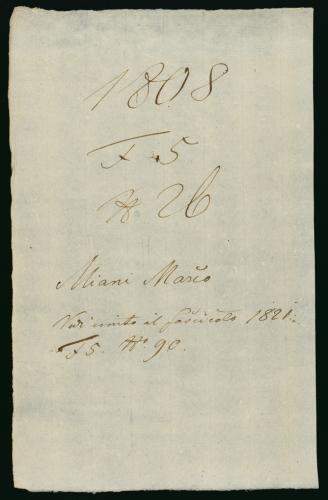 1808
F 5
N. 26
Miani Marco
Vedi unito al fascicolo 1821.
F5. No. 90.